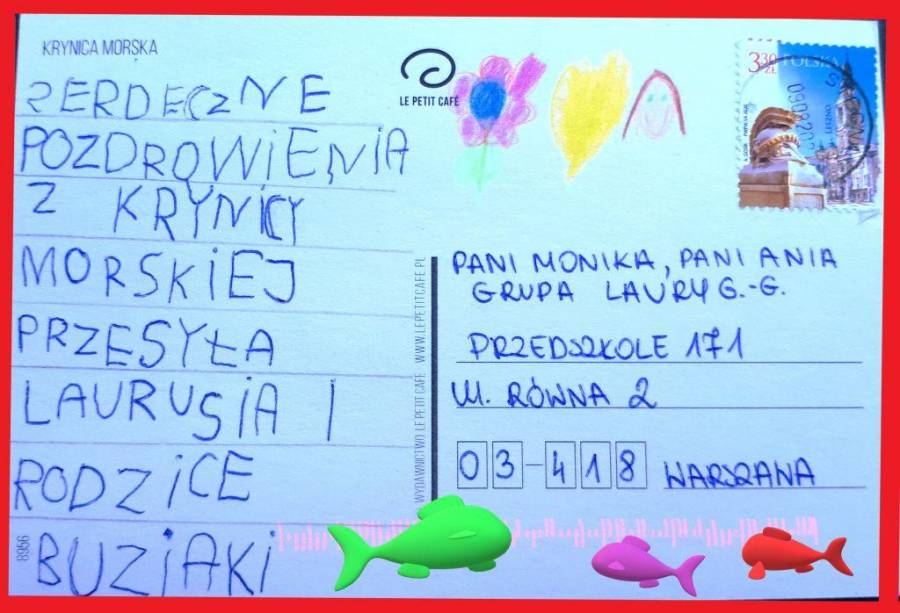 KRYNICA MORSKA
SERDECZNE
POZDROWIENIA
Z KRYNICY
MORSKIEJ
PRZESYŁA
LAURUSIA I
RODZICE
BUZIAKI
8956
LE PETIT CAFÉ
WYDAWNICTWO LE PETIT CAFE WWW.LEPETITCAFE.PL
3,30 ZŁ POLSKA
PANI MONIKA, PANI ANIA
GRUPA LAURY G.-G.
PRZEDSZKOLE 171
Ul. RÓWNA 2
03-418 WARSZAWA